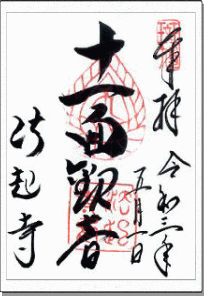 奉拝
令和三年
五月一日
十一面観音
法起寺